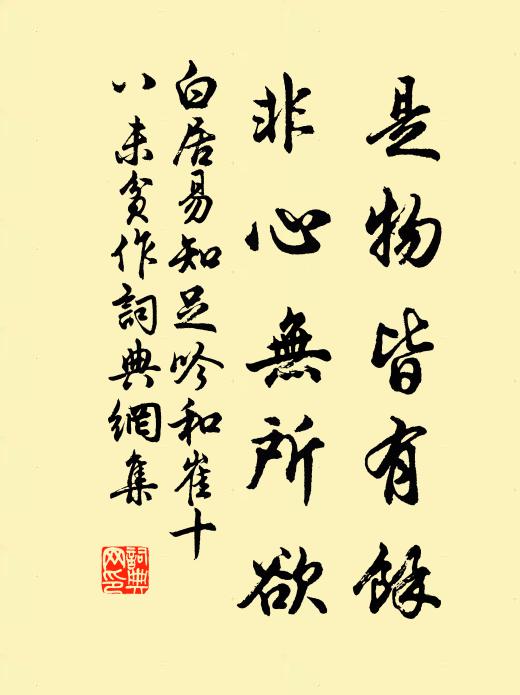 是物皆有餘
非心無所欲
白居易知足吟和崔十
八未貧作詞典網集
詞典
网印